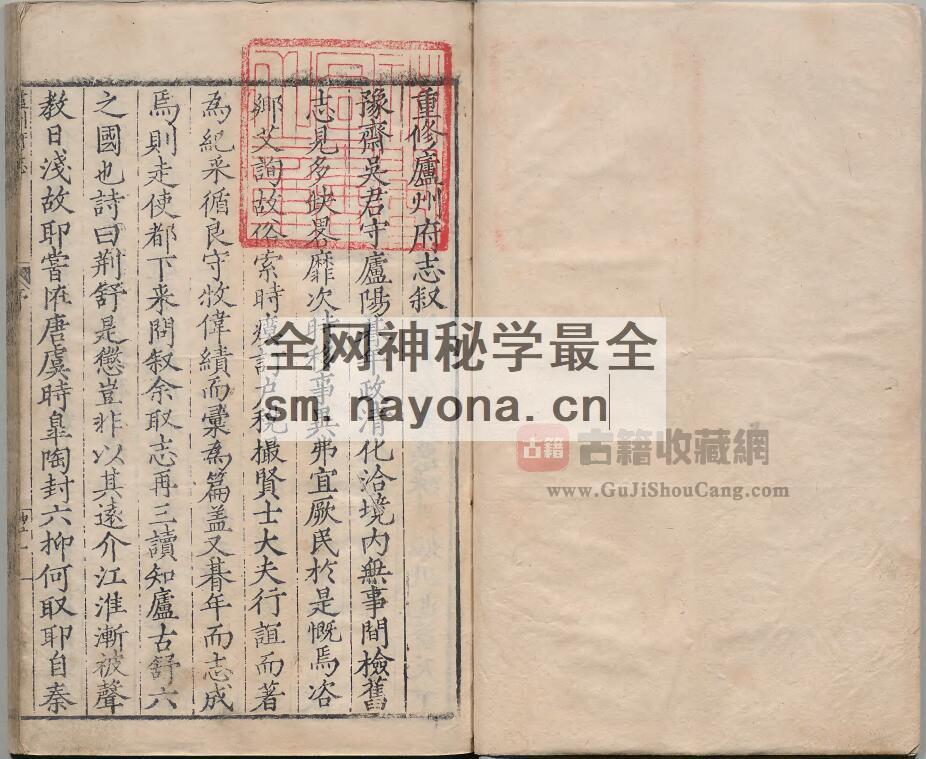 重修廬州府志叙
豫齋吳君守廬陽政清化洽境內無事間檢舊
志見多缺畧靡次時事異弗宜厥民於是慨焉咨
鄉艾詢故俗索時瘼訂户稅撮賢士大夫行誼而著
為紀采循良守牧偉績而彙為篇盖又朞年而志成
焉則走使都下来問叙余取志再三讀知廬古舒六
之國也詩曰荆舒是懲豈非以其遠介江淮漸被聲
教日淺故耶嘗陁唐虞時臯陶封六抑何取耶自秦
全网神秘学最全
sm.nayona.cn
古籍
古籍收藏網
www.GuJiShouCang.com